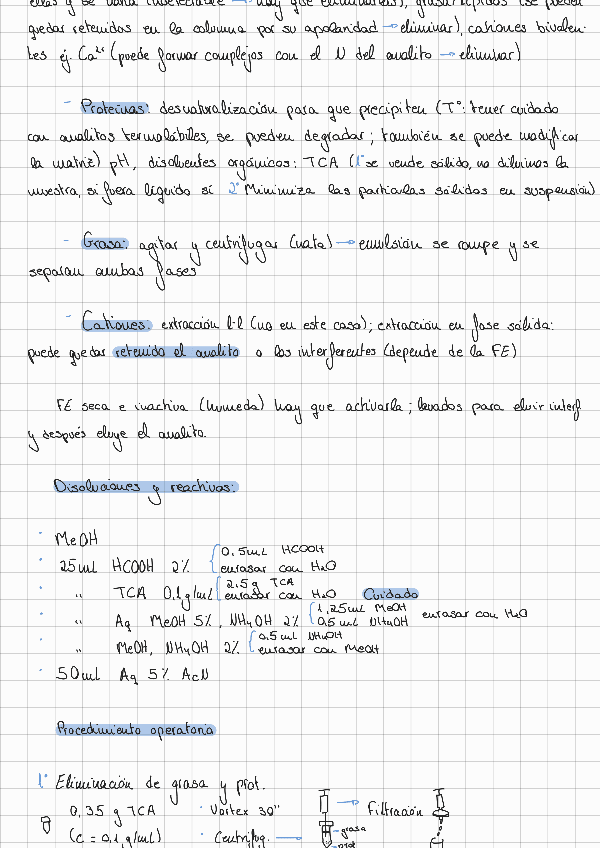 quedar retenidos en la columna por su apolaridad → eliminar), cationes bivalen-
tes ej. Ca²⁺ (puede formar complejos con el N del analito → eliminar)
- Proteínas: desnaturalización para que precipiten (Tª: tener cuidado
con analitos termolábiles, se pueden degradar; también se puede modificar
la matriz) pH, disolventes orgánicos: TCA (1º se vende sólido, no diluimos la
muestra, si fuera líquido sí 2º Minimiza las partículas sólidas en suspensión)
- Grasa: agitar y centrifugar (nata) → emulsión se rompe y se
separan ambas fases
- Cationes: extracción l-l (no en este caso); extracción en fase sólida:
puede quedar retenido el analito o los interferentes (depende de la FE)
FE seca e inactiva (húmeda) hay que activarla; lavados para eluir interf
y después eluye el analito.
Disoluciones y reactivos:
· MeOH
· 25 mL HCOOH 2% { 0,5 mL HCOOH
enrasar con H₂O
· " TCA 0,1 g/mL { 2,5 g TCA
enrasar con H₂O Cuidado
· " Aq MeOH 5%, NH₄OH 2% { 1,25 mL MeOH
0,5 mL NH₄OH enrasar con H₂O
· " MeOH, NH₄OH 2% { 0,5 mL NH₄OH
enrasar con MeOH
· 50 mL Aq 5% AcN
Procedimiento operatorio
1º Eliminación de grasa y prot.
0,35 g TCA · Vortex 30" → Filtración
(C = 0,1 g/mL) · Centrifug. → grasa
prot